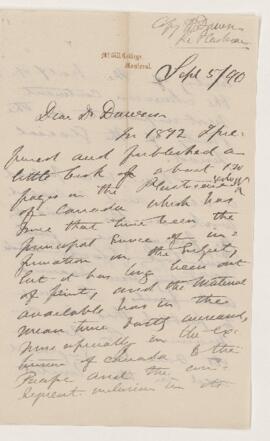 Copy Dr Dawson
McGill College,
Montreal.
Sept 5/90
Dear Dr Dawson
In 1872 I pre-
pared and published a
little book of about 120
pages on the Pleistocene geology
of Canada which has
since that time been the
principal source of in-
formation on the Subject,
but it has long been out
of print, and the material
available has in the
mean time vastly increased,
more especially in the ex-
tension of Canada to the
Pacific and the con-
sequent inclusion in its